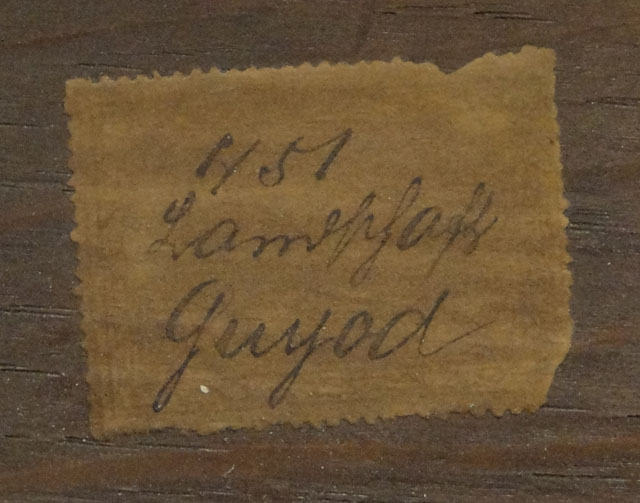 1451
Landschaft
Guyod